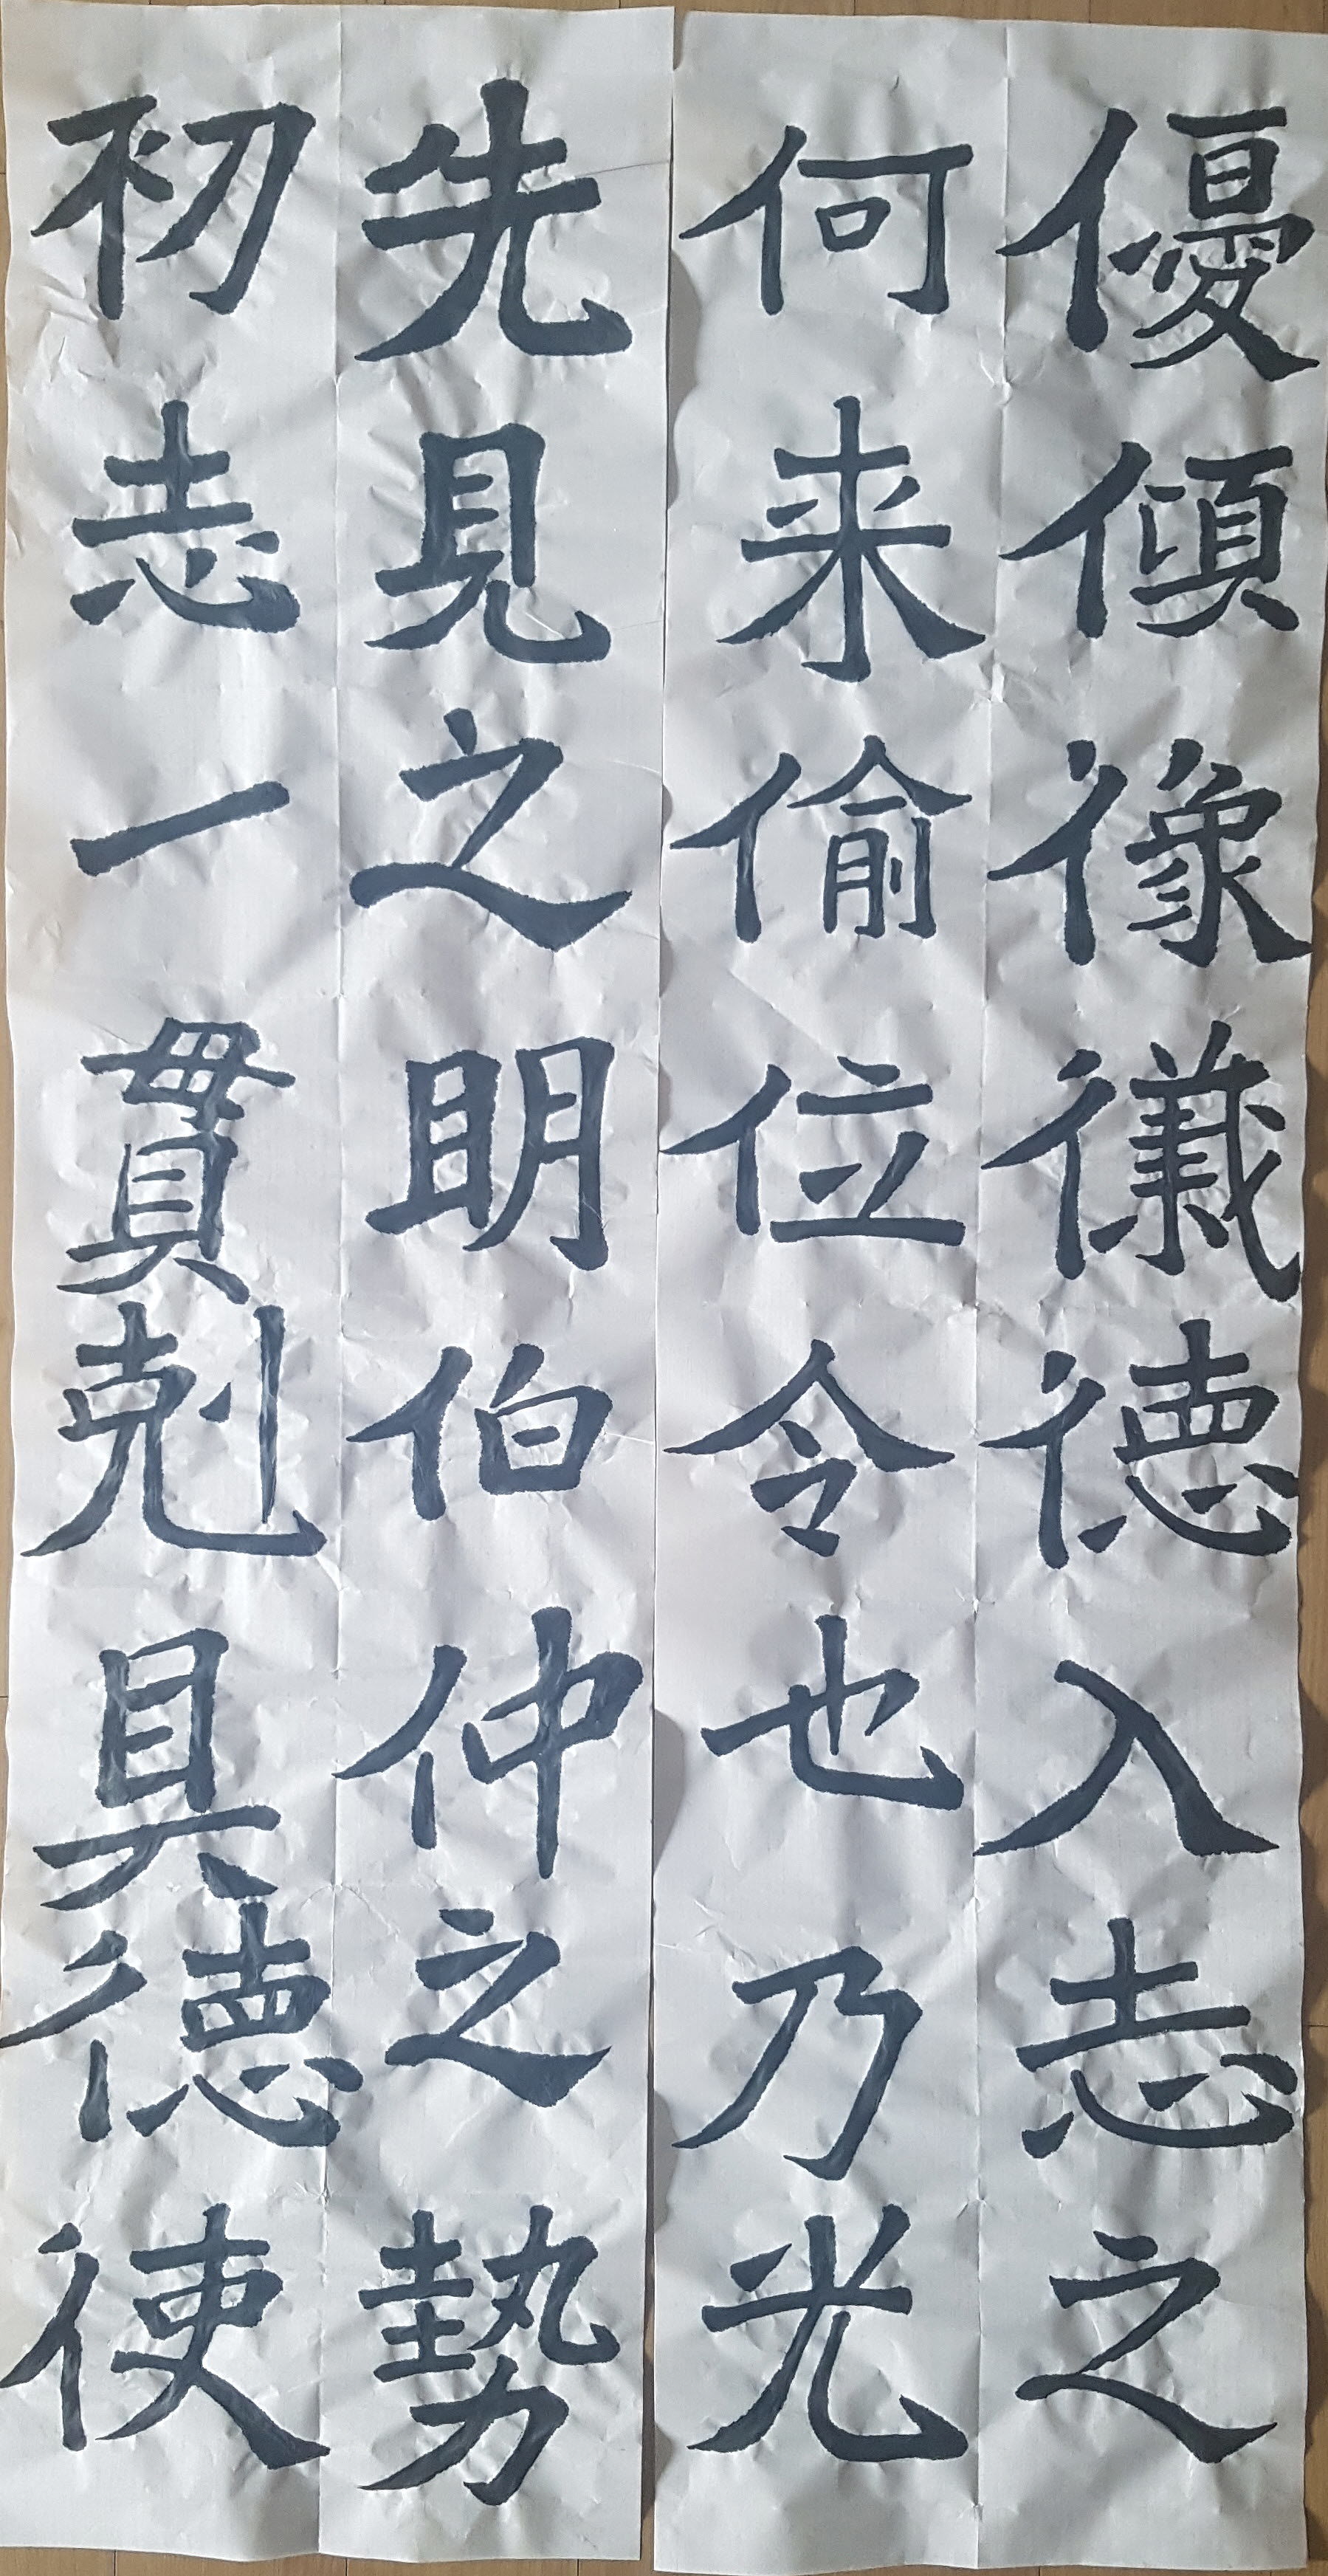 優傾像儀德入志之
何来偷位令也乃光
先見之明伯仲之勢
初志一貫剋具德使